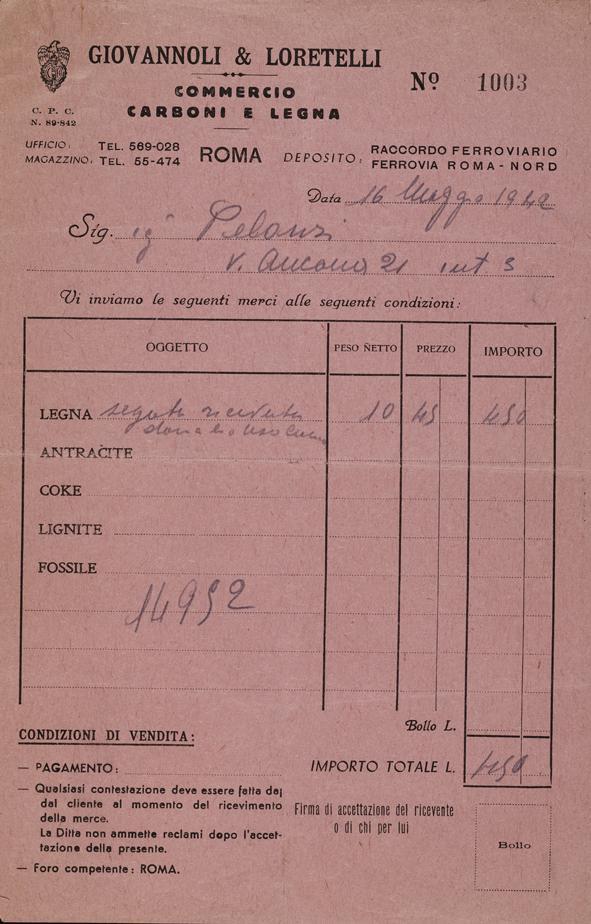 GIOVANNOLI & LORETELLI
COMMERCIO
CARBONI E LEGNA
Nº 1003
C. P. C.
N. 89-842
UFFICIO: TEL. 569-028
MAGAZZINO: TEL. 55-474
ROMA
DEPOSITO: RACCORDO FERROVIARIO
FERROVIA ROMA - NORD
Data 16 Maggio 1942
Sig.
V. Ancona 21 int 3
Vi inviamo le seguenti merci alle seguenti condizioni:
OGGETTO PESO NETTO PREZZO IMPORTO
LEGNA segata 10 45 450
ANTRACITE
COKE
LIGNITE
FOSSILE
14952
Bollo L.
IMPORTO TOTALE L. 450
CONDIZIONI DI VENDITA:
— PAGAMENTO:
— Qualsiasi contestazione deve essere fatta dal
dal cliente al momento del ricevimento
della merce.
La Ditta non ammette reclami dopo l'accet-
tazione della presente.
— Foro competente: ROMA.
Firma di accettazione del ricevente
o di chi per lui
Bollo